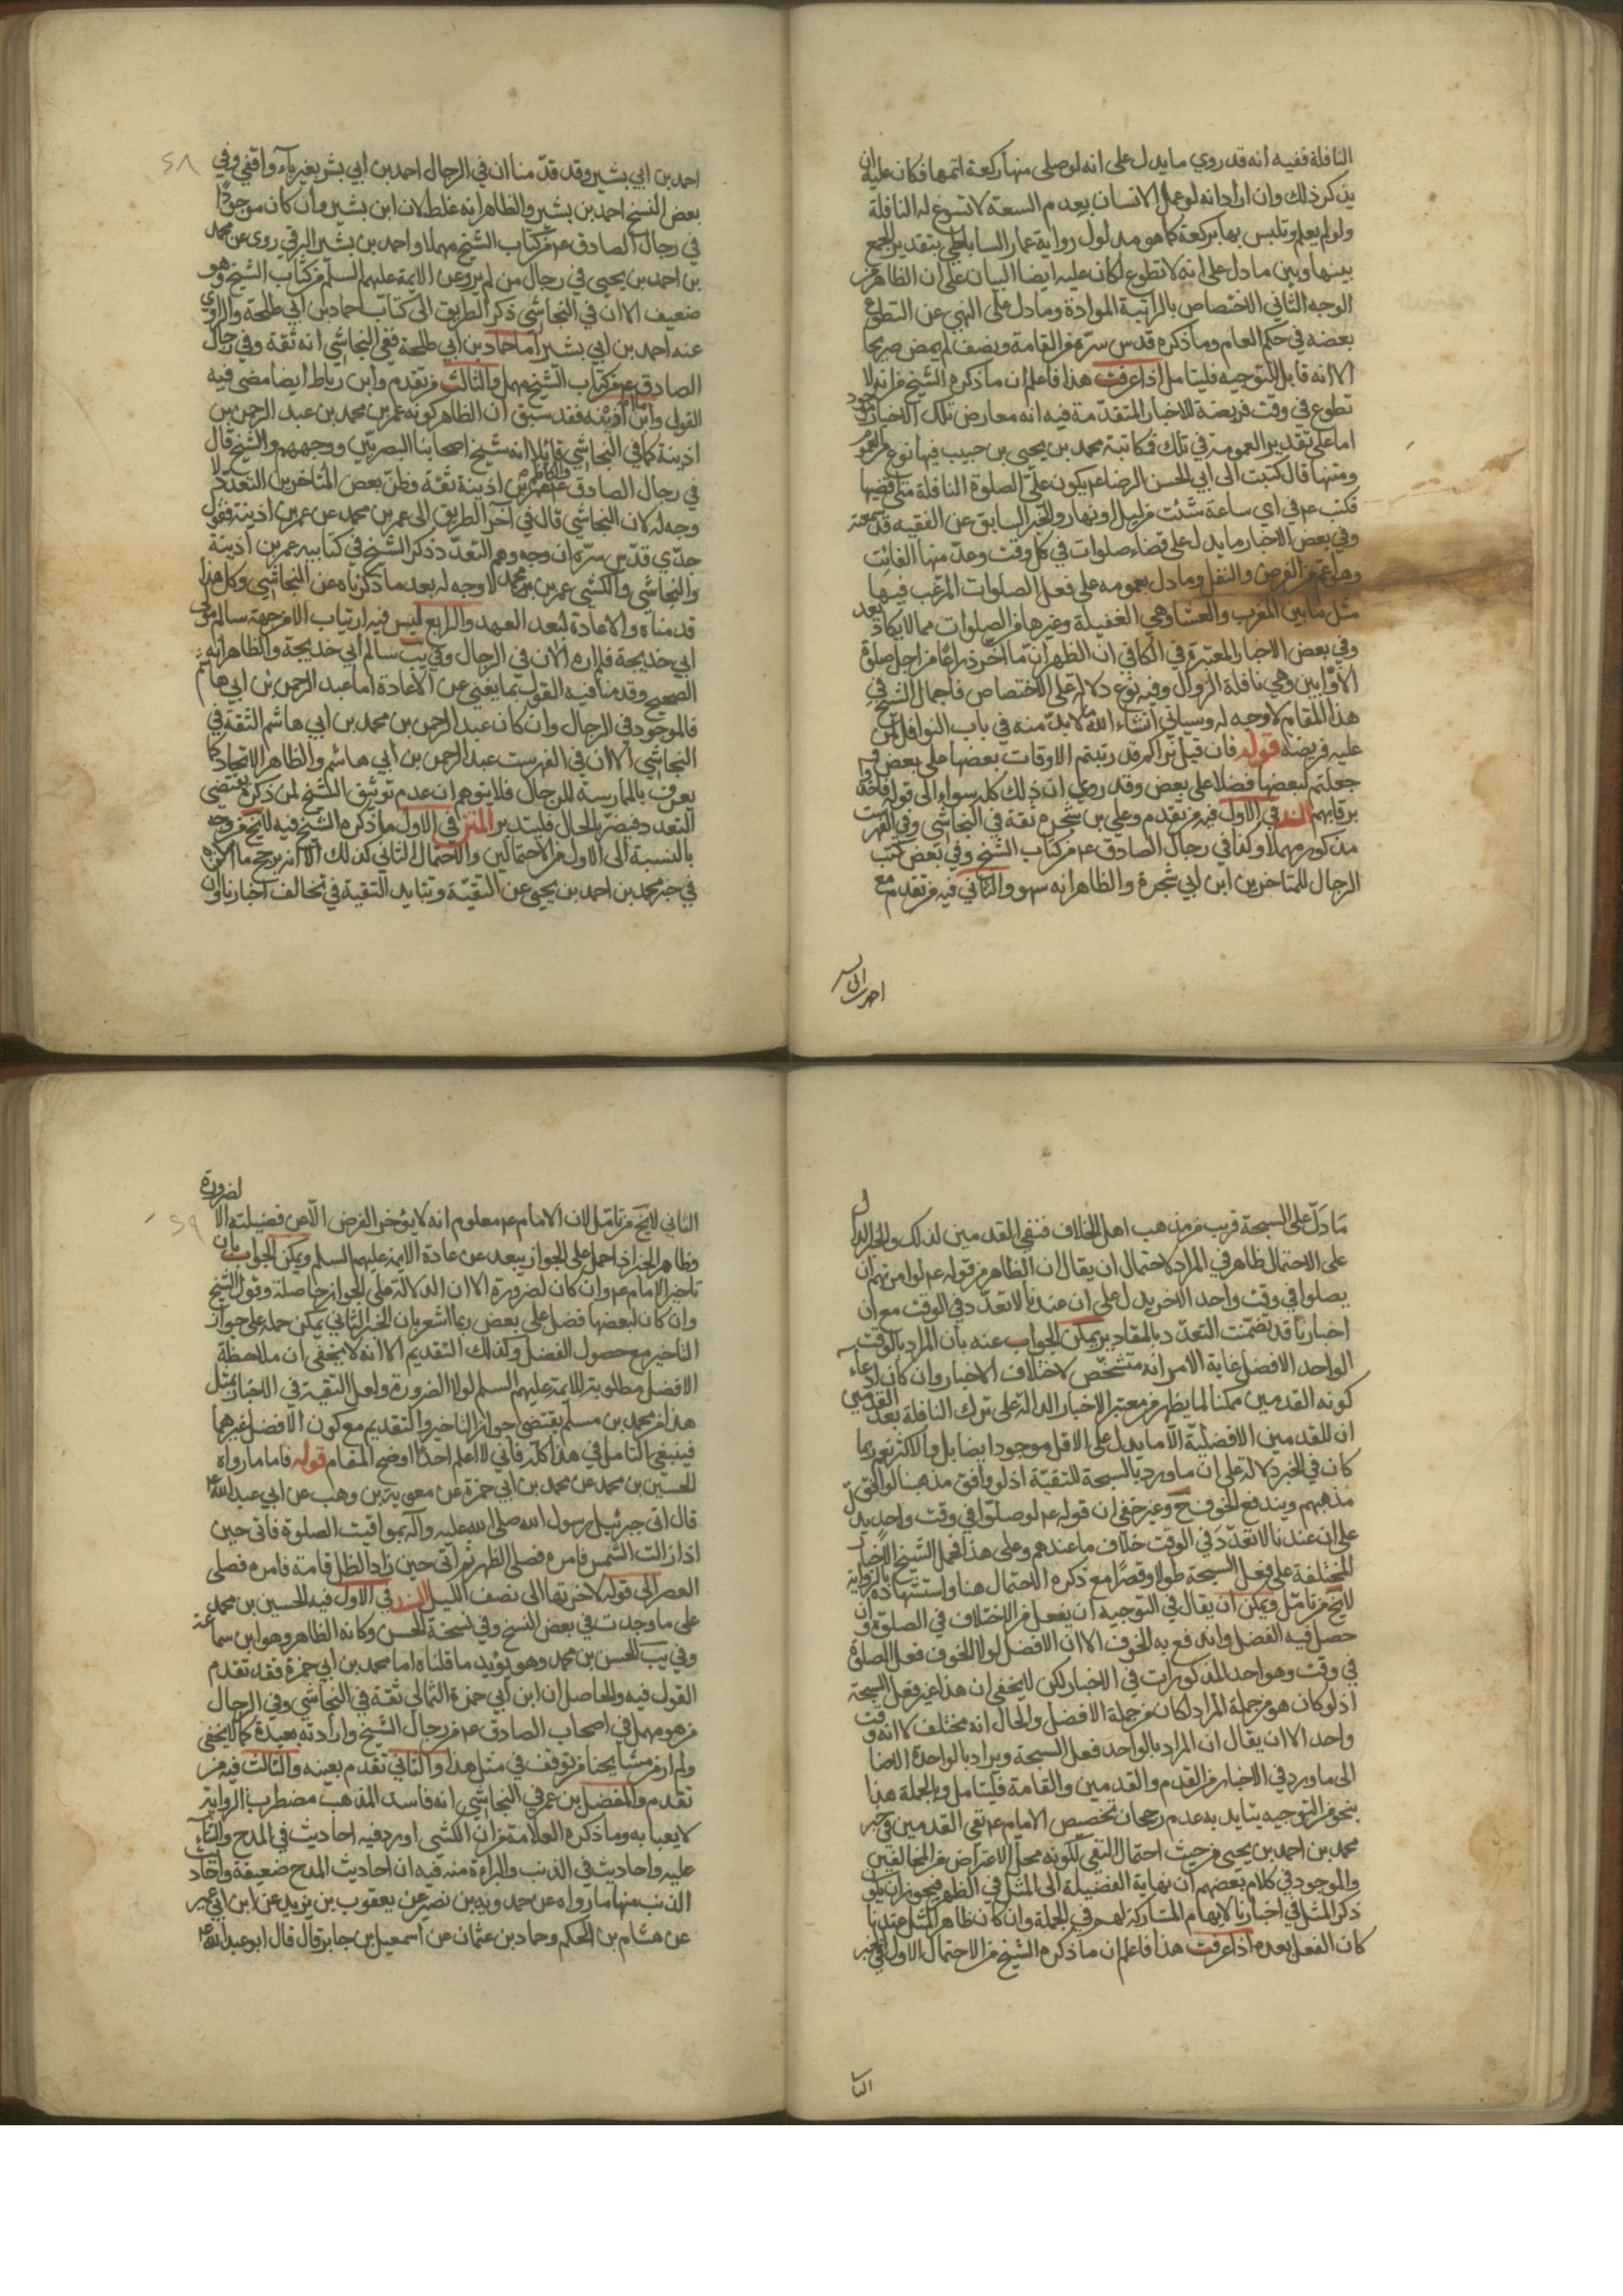 النافلة ففيه انه قد روي ما يدل على انه لو صلى منها ركعة اتمها فكان عليه ان
يذكر ذلك وان اراد انه لو عمل الانسان بعدم السعة لا تسوغ له النافلة
ولو لم يعلم وتلبس بها بركعة كما هو مدلول رواية عمار الساباطي بتقدير الجمع
بينها وبين ما دل على انه لا تطوع لكان عليه ايضا البيان على ان الظاهر من
الوجه الثاني الاختصاص بالراتبة الموادة وما دل على النهي عن التطوع
بعضه في حكم العام وما ذكره قدس سره من القامة ونصف لم يمض صريحا
الا انه قابل التوجيه فليتامل اذا عرفت هذا فاعلم ان ما ذكره الشيخ من انه لا
تطوع في وقت فريضة للاخبار المتقدمة فيه انه معارض بتلك الاخبار
اما على تقدير العموم في تلك فمكاتبة محمد بن يحيى بن حبيب فيها نوع من العموم
ومتنها قال كتبت الى ابي الحسن الرضا ع يكون علي الصلوة النافلة متى اقضيها
فكتب ع في اي ساعة شئت من ليل او نهار والخبر السابق عن الفقيه قد سمعته
وفي بعض الاخبار ما يدل على قضاء صلوات في كل وقت وعد منها الفائت
وهو اعم من الفرض والنفل وما دل بعمومه على فعل الصلوات المرغب فيها
مثل ما بين المغرب والعشا وهي الغفيلة وغيرها من الصلوات مما لا يكاد يعد
وفي بعض الاخبار المعتبرة في الكافي ان الظهر انما اخر ذراعا من اجل صلوة
الاوابين وهي نافلة الزوال وفيه نوع دلالة على الاختصاص فاجمال الشيخ في
هذا المقام لا وجه له وسياتي انشاء الله ما لا بد منه في باب النوافل لمن
عليه فريضة قوله فان قيل نراكم قد رتبتم الاوقات بعضها على بعض و
جعلتم لبعضها فضلا على بعض وقد روي ان ذلك كله سواء الى قوله فاخذوا
برقابهم السند في الاول فيه من تقدم وعلي بن شجرة ثقة في النجاشي وفي الفهرست
مذكور مهملا وكذا في رجال الصادق ع من كتاب الشيخ وفي بعض كتب
الرجال للمتاخرين ابن ابي شجرة والظاهر انه سهو والثاني فيه من تقدم مع
احمد بن ابي بشير وقد قدمنا ان في الرجال احمد بن ابي بشر بغير ياء واقفي وفي
بعض النسخ احمد بن بشير والظاهر انه غلط لان ابن بشير وان كان موجودا
في رجال الصادق ع من كتاب الشيخ مهملا واحمد بن بشير البرقي روى عن محمد
بن احمد بن يحيى في رجال من لم يرو عن الائمة عليهم السلم من كتاب الشيخ وهو
ضعيف الا ان في النجاشي ذكر الطريق الى كتاب احماد بن ابي طلحة والراوي
عنه احمد بن ابي بشير اما حماد بن ابي طلحة ففي النجاشي انه ثقة وفي رجال
الصادق ع من كتاب الشيخ مهمل والثالث من تقدم وابن رباط ايضا مضى فيه
القول واما ابن اذينه فقد سبق ان الظاهر كونه عمر بن محمد بن عبد الرحمن بن
اذينة كما في النجاشي قائلا انه شيخ اصحابنا البصريين ووجههم والشيخ قال
في رجال الصادق والكاظم ع عمر بن اذينة ثقة وظن بعض المتاخرين التعدد ولا
وجه له لان النجاشي قال في آخر الطريق الى عمر بن محمد عن عمر بن اذينة فقول
جدي قدس سره ان وجه وهم التعدد ذكر الشيخ في كتابيه عمر بن اذينة
والنجاشي والكشي عمر بن محمد لا وجه له بعد ما ذكرناه عن النجاشي وكل هذا
قدمناه والاعادة لبعد العهد والرابع ليس فيه ارتياب الا من جهة سالم مولى
ابي خديجة فلم اره الان في الرجال وفي يب سالم ابي خديجة والظاهر انه
الصحيح وقدمنا فيه القول بما يغني عن الاعادة اما عبد الرحمن بن ابي هاشم
فالموجود في الرجال وان كان عبد الرحمن بن محمد بن ابي هاشم الثقة في
النجاشي الا ان في الفهرست عبد الرحمن بن ابي هاشم والظاهر الاتحاد كما
يعرف بالممارسة للرجال فلا يتوهم ان عدم توثيق الشيخ لمن ذكره يقتضي
التعدد فيضر بالحال فليتدبر المتن في الاول ما ذكره الشيخ فيه لا يخ من وجه
بالنسبة الى الاول من الاحتمالين والاحتمال الثاني كذلك الا انه يرجح ما
في خبر محمد بن احمد بن يحيى عن التقية وتتايد التقية في تخالف اخبارنا وان
ما دل على السبحة قريب من مذهب اهل الخلاف فنفي القدمين لذلك والخبر الدال
على الاحتمال ظاهر في المراد لاحتمال ان يقال ان الظاهر من قوله ع لو امرتهم ان
يصلوا في وقت واحد الاخر يدل على ان عندنا لا تعدد في الوقت مع ان
اخبارنا قد تضمنت التعدد بالمقادير يمكن الجواب عنه بان المراد بالوقت
الواحد الافضل غاية الامر انه متشخص لاختلاف الاخبار وان كان ادعاء
كونه القدمين ممكنا لما يظهر من معتبر الاخبار الدالة على ترك النافلة بعد القدمين
ان للقدمين الافضلية الا ما يدل على الاقل موجود ايضا بل والاكثر نعم ربما
كان في الخبر دلالة على ان ما ورد بالسبحة للتقية اذ لو وافق مذهبنا لو افق
مذهبهم ويندفع الخوف ح وغير خفي ان قوله ع لو صلوا في وقت واحد يدل
على ان عندنا لا تعدد في الوقت خلاف ما عندهم وعلى هذا فحمل الشيخ الاخبار
المختلفة على فعل السبحة طولا وقصرا مع ذكره الاحتمال هنا واستشهاده بالرواية
لا يخ من تامل ويمكن ان يقال في التوجيه ان بفعل من الاختلاف في الصلوة وان
حصل فيه الفضل واندفع به الخوف الا ان الافضل لولا الخوف فعل الصلوة
في وقت وهو احد المذكورات في الاخبار لكن لا يخفى ان هذا غير فعل السبحة
اذ لو كان هو من جملة المراد لكان من جملة الافضل والحال انه مختلف لا انه وقت
واحد الا ان يقال ان المراد بالواحد فعل السبحة ويراد بالواحد
الى ما ورد في الاخبار من القدم والقدمين والقامة فليتامل وبالجملة هذا
بنحو من التوجيه يتايد به عدم رجحان تخصيص الامام ع نفي القدمين في خبر
محمد بن احمد بن يحيى من حيث احتمال النفي لكونه محل الاعتراض من المخالفين
والموجود في كلام بعضهم ان نهاية الفضيلة الى المثل في الظهر فيجوز ان يكون
ذكر المثل في اخبارنا لايهام المشاركة لهم في الجملة وان كان ظاهر المثل عندنا
كان الفعل بعده اذا عرفت هذا فاعلم ان ما ذكره الشيخ من الاحتمال الاول في خبر
الثاني لا يخ من تامل لان الامام ع معلوم انه لا يؤخر الفرض الا عن فضيلته الا لضرورة
وظاهر الخبر اذ احمل على الجواز يبعد عن عادة الائمة عليهم السلم ويمكن الجواب بان
تاخير الامام ع وان كان لضرورة الا ان الدلالة على الجواز حاصلة وقول الشيخ
وان كان لبعضها فضل على بعض ربما اشعر بان الخبر الثاني يمكن حمله على جواز
التاخير مع حصول الفضل وكذلك التقديم الا انه لا يخفى ان ملاحظة
الافضل مطلوبة للائمة عليهم السلم لولا الضرورة ولعل التقية في الاخبار بمثل
هذا من محمد بن مسلم يقتضي جواز التاخير والتقديم مع كون الافضل غيرهما
فينبغي التامل في هذا كله فاني لا اعلم احدا اوضح المقام قوله فاما ما رواه
الحسين بن محمد عن محمد بن ابي حمزة عن معوية بن وهب عن ابي عبد الله ع
قال اتى جبرئيل رسول الله صلى الله عليه وآله بمواقيت الصلوة فاتى حين
اذا زالت الشمس فامره فصلى الظهر ثم اتى حين زاد الظل قامة فامره فصلى
العصر الى قوله لاخرتها الى نصف الليل السند في الاول فيه الحسين بن محمد
على ما وجدت في بعض النسخ وفي نسخة الحسن وكانه الظاهر وهو ابن سماعة
وفي يب الحسن بن محمد وهو يؤيد ما قلناه اما محمد بن ابي حمزة فقد تقدم
القول فيه والحاصل ان ابن ابي حمزة الثمالي ثقة في النجاشي وفي الرجال
من هو مهمل في اصحاب الصادق ع من رجال الشيخ وارادته بعيدة كما لا يخفى
ولم ار من مشايخنا من توقف في مثل هذا والثاني تقدم بعينه والثالث فيه من
تقدم والمفضل بن عمر في النجاشي انه فاسد المذهب مضطرب الرواية
لا يعبا به وما ذكره العلامة من ان الكشي اورد فيه احاديث في المدح والثناء
عليه واحاديث في الذنب والبراءة منه فيه ان احاديث المدح ضعيفة واحاديث
الذنب منها ما رواه عن حمدويه بن نصير عن يعقوب بن يزيد عن ابن ابي عمير
عن هشام بن الحكم وحماد بن عثمان عن اسمعيل بن جابر قال قال ابو عبد الله ع